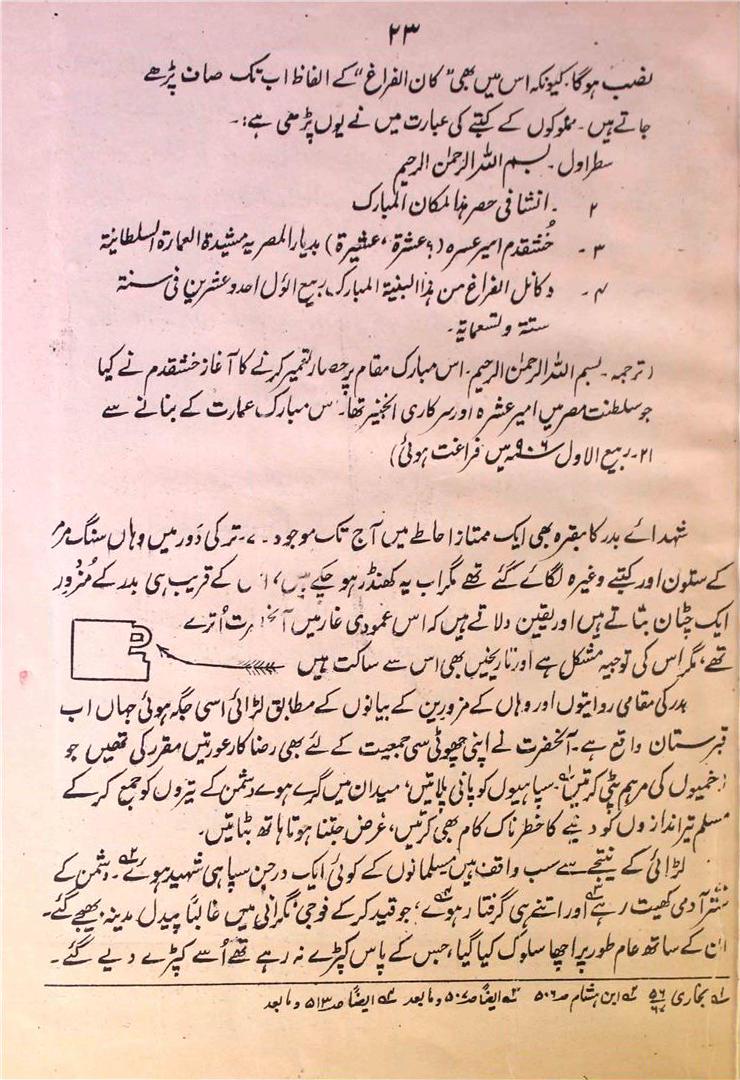 ۲۳
نصب ہوگا۔ کیونکہ اس میں بھی "کان الفراغ" کے الفاظ اب تک صاف پڑھے
جاتے ہیں۔ مملوکوں کے کتبے کی عبارت میں نے یوں پڑھی ہے:۔
سطر اول۔ بسم اللہ الرحمٰن الرحیم
۲ ۔ انشا فی حصر ہذا لمکان المبارک
۳۔ خُشقدم امیر عسرہ (؟ عشرۃ، عشیرۃ) بدیار المصریہ مشیدۃ العمارۃ السلطانیۃ
۴۔ وکانل الفراغ من ہذا البنیۃ المبارک ربیع الوّل احد و عشرین فی سنۃ
ستۃ وتسعمایۃ۔
(ترجمہ۔ بسم اللہ الرحمٰن الرحیم۔ اس مبارک مقام پر حصار تعمیر کرنے کا آغاز خشقدم نے کیا
جو سلطنت مصر میں امیر عشرہ اور سرکاری انجنیر تھا۔ اس مبارک عمارت کے بنانے سے
۲۱۔ ربیع الاول ۹۰۶ھ میں فراغت ہوئی)
شہدائے بدر کا مقبرہ بھی ایک ممتاز احاطے میں آج تک موجود ہے۔ ترکی دَور میں وہاں سنگ مرمر
کے ستون اور کتبے وغیرہ لگائے گئے تھے مگر اب یہ کھنڈر ہو چکے ہیں، اس کے قریب ہی بدر کے مُزوّر
ایک چٹان بتاتے ہیں اور یقین دلاتے ہیں کہ اس عمودی غار میں آنحضرت اُترے
تھے، مگر اس کی توجیہ مشکل ہے اور تاریخیں بھی اس سے ساکت ہیں
بدر کی مقامی روایتوں اور وہاں کے مزورین کے بیانوں کے مطابق لڑائی اسی جگہ ہوئی جہاں اب
قبرستان واقع ہے۔ آنحضرت نے اپنی چھوٹی سی جمعیت کے لئے بھی رضا کار عورتیں مقرر کی تھیں جو
زخمیوں کی مرہم پٹی کرتیں ؎۱ سپاہیوں کو پانی پلاتیں، میدان میں گرے ہوے دشمن کے تیروں کو جمع کر کے
مسلم تیر اندازوں کو دینے کا خطرناک کام بھی کرتیں، غرض جتنا ہوتا ہاتھ بٹاتیں۔
لڑائی کے نتیجے سے سب واقف ہیں مسلمانوں کے کوئی ایک درجن سپاہی شہید ہوئے ؎۲۔ دشمن کے
ستّر آدمی کھیت رہے ؎۳ اور اتنے ہی گرفتار ہوے، ؎۴ جو قید کر کے فوجی نگرانی میں غالباً پیدل مدینہ بھیجے گئے۔
ان کے ساتھ عام طور پر اچھا سلوک کیا گیا، جس کے پاس کپڑے نہ رہے تھے اُسے کپڑے دیے گئے۔
؎۱ بخاری ۵۶/۶۷ ؎۲ ابن ہشام صہ ۵۰۶ ؎۳ ایضًا صہ ۵۰۷ و ما بعد ؎۴ ایضًا صہ ۵۱۳ و ما بعد